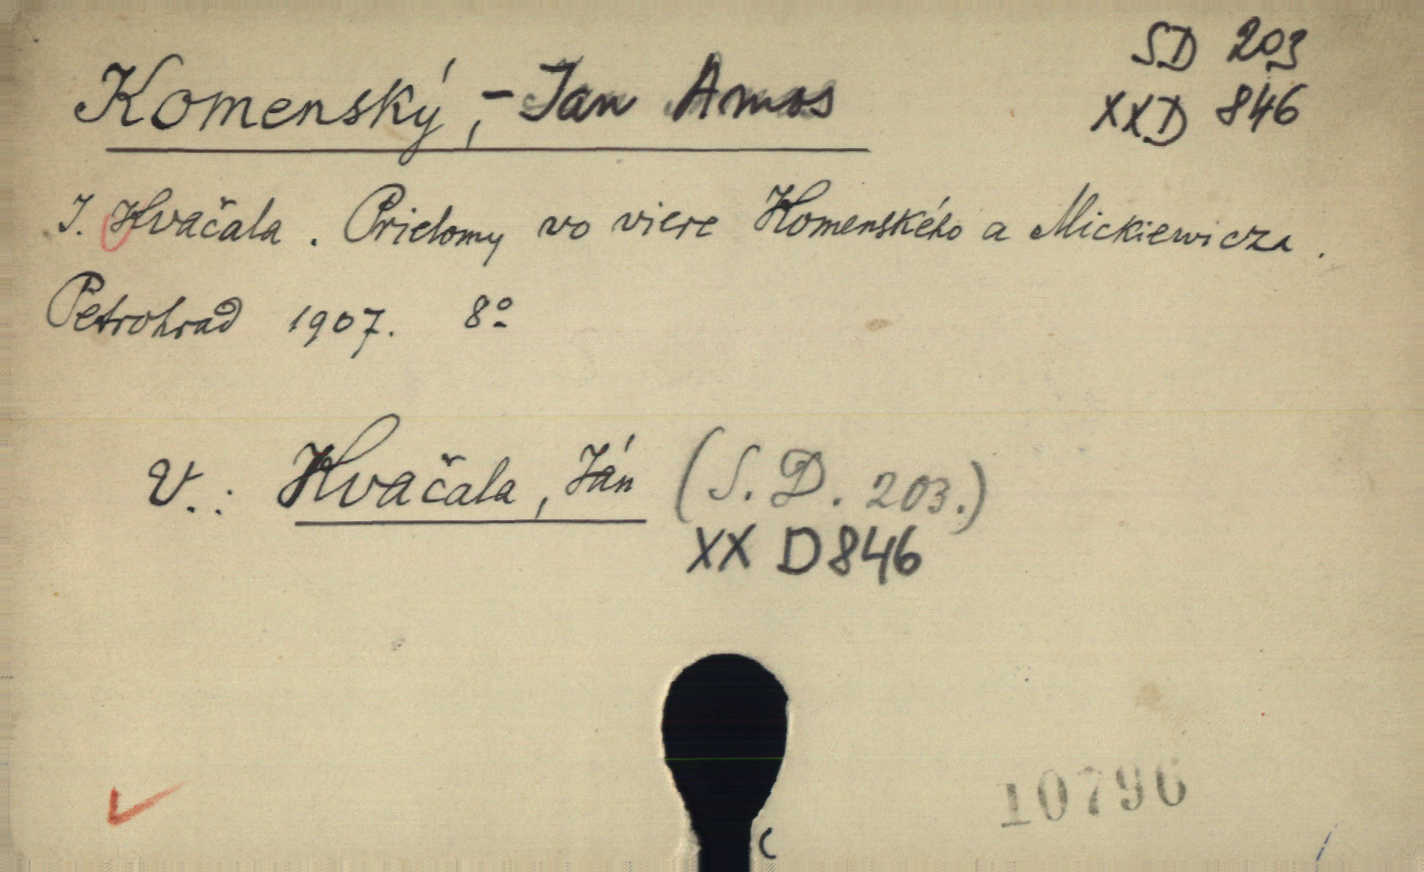 SD 203
Komenský, - Jan Amos
XXD 846
J. Kvačala. Prielomy vo viere Komenského a Mickiewicza.
Petrohrad 1907. 8º
V.: Kvačala, Ján (S. D. 203.)
XX D 846
10796